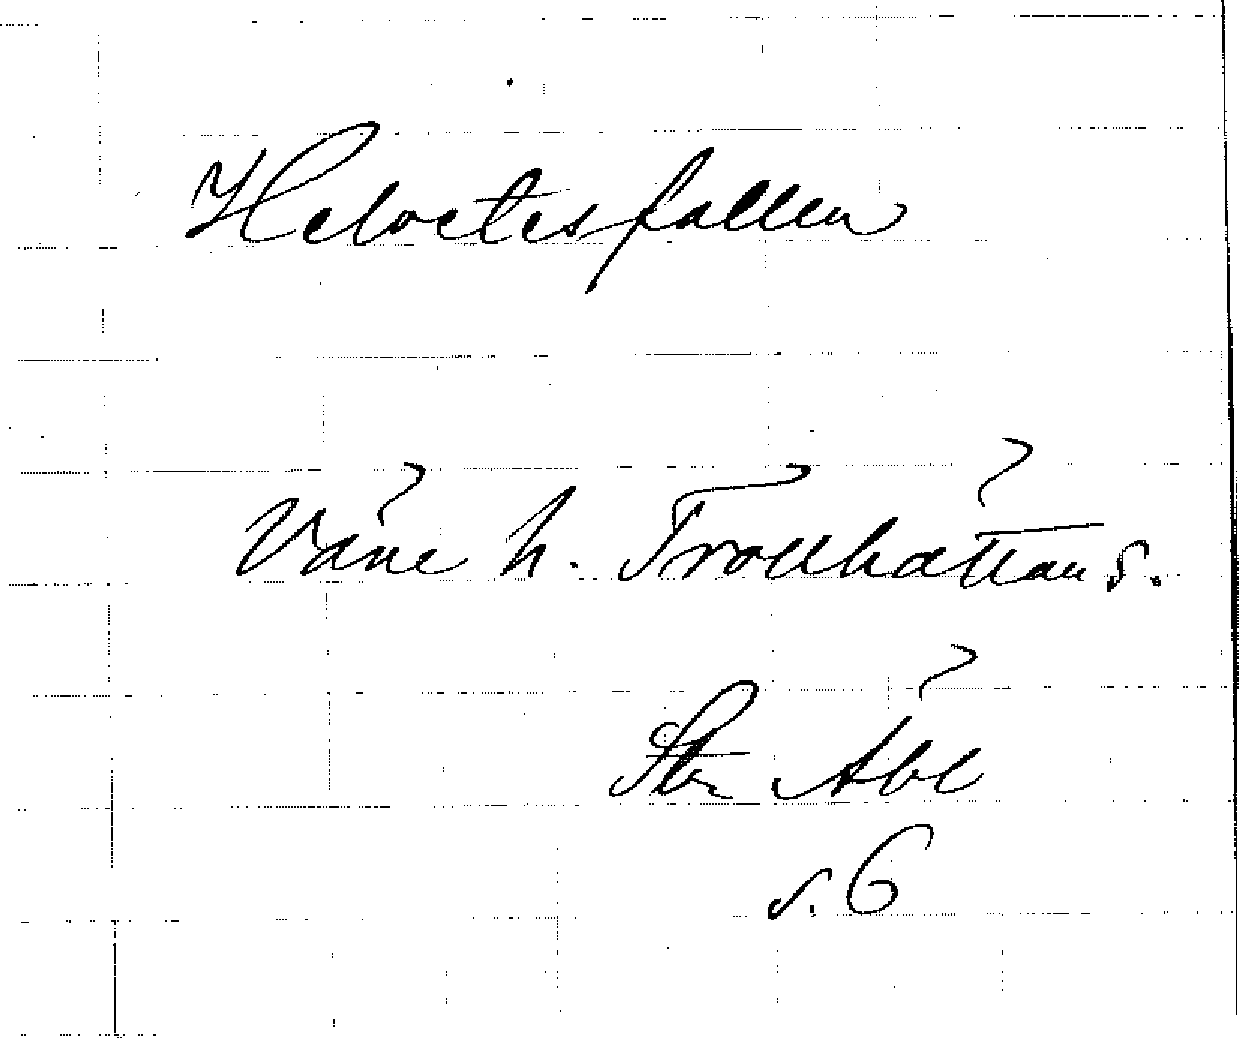 Helvetesfallen
Väne h. Trollhättan s.
s. 6